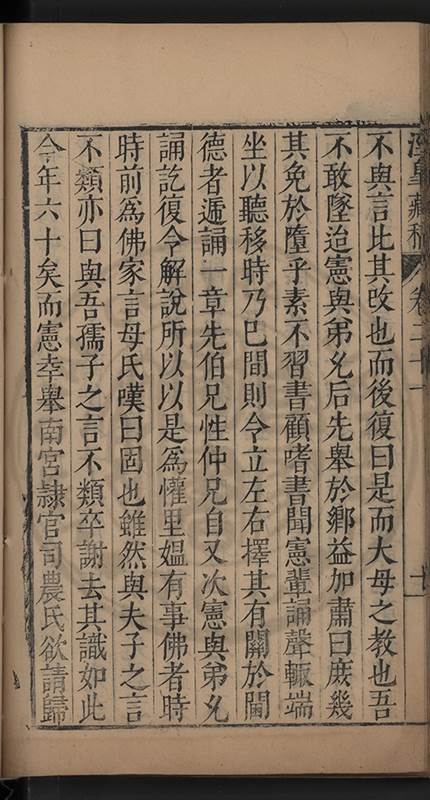 卷二十一
不與言比其改也而後復曰是而大母之教也吾
不敢墜迨憲與弟允后先舉於鄉益加肅曰庶幾
其免於隳乎素不習書顧嗜書聞憲輩誦聲輒端
坐以聽移時乃已間則令立左右擇其有關於閫
德者遞誦一章先伯兄性仲兄自又次憲與弟允
誦訖復令解說所以以是為懽里媼有事佛者時
時前為佛家言母氏嘆曰固也雖然與夫子之言
不類亦曰與吾孺子之言不類卒謝去其識如此
今年六十矣而憲幸舉南宮隷官司農氏欲請歸